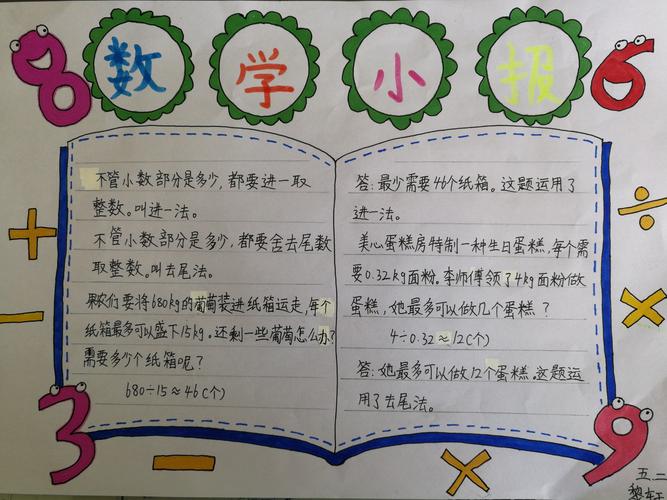 数学小报
不管小数部分是多少,都要进一取
整数。叫进一法。
不管小数部分是多少,都要舍去尾数
取整数。叫去尾法。
果农们要将680kg的葡萄装进纸箱运走,每个
纸箱最多可以盛下15kg。还剩一些葡萄怎么办?
需要多少个纸箱呢?
680÷15≈46(个)
答:最少需要46个纸箱。这题运用了
进一法。
美心蛋糕房特制一种生日蛋糕,每个需
要0.32kg面粉。李师傅领了4kg面粉做
蛋糕,她最多可以做几个蛋糕?
4÷0.32≈12(个)
答:她最多可以做12个蛋糕。这题运
用了去尾法。
8
6
3
9
+
−
÷
×
−
×
五.二